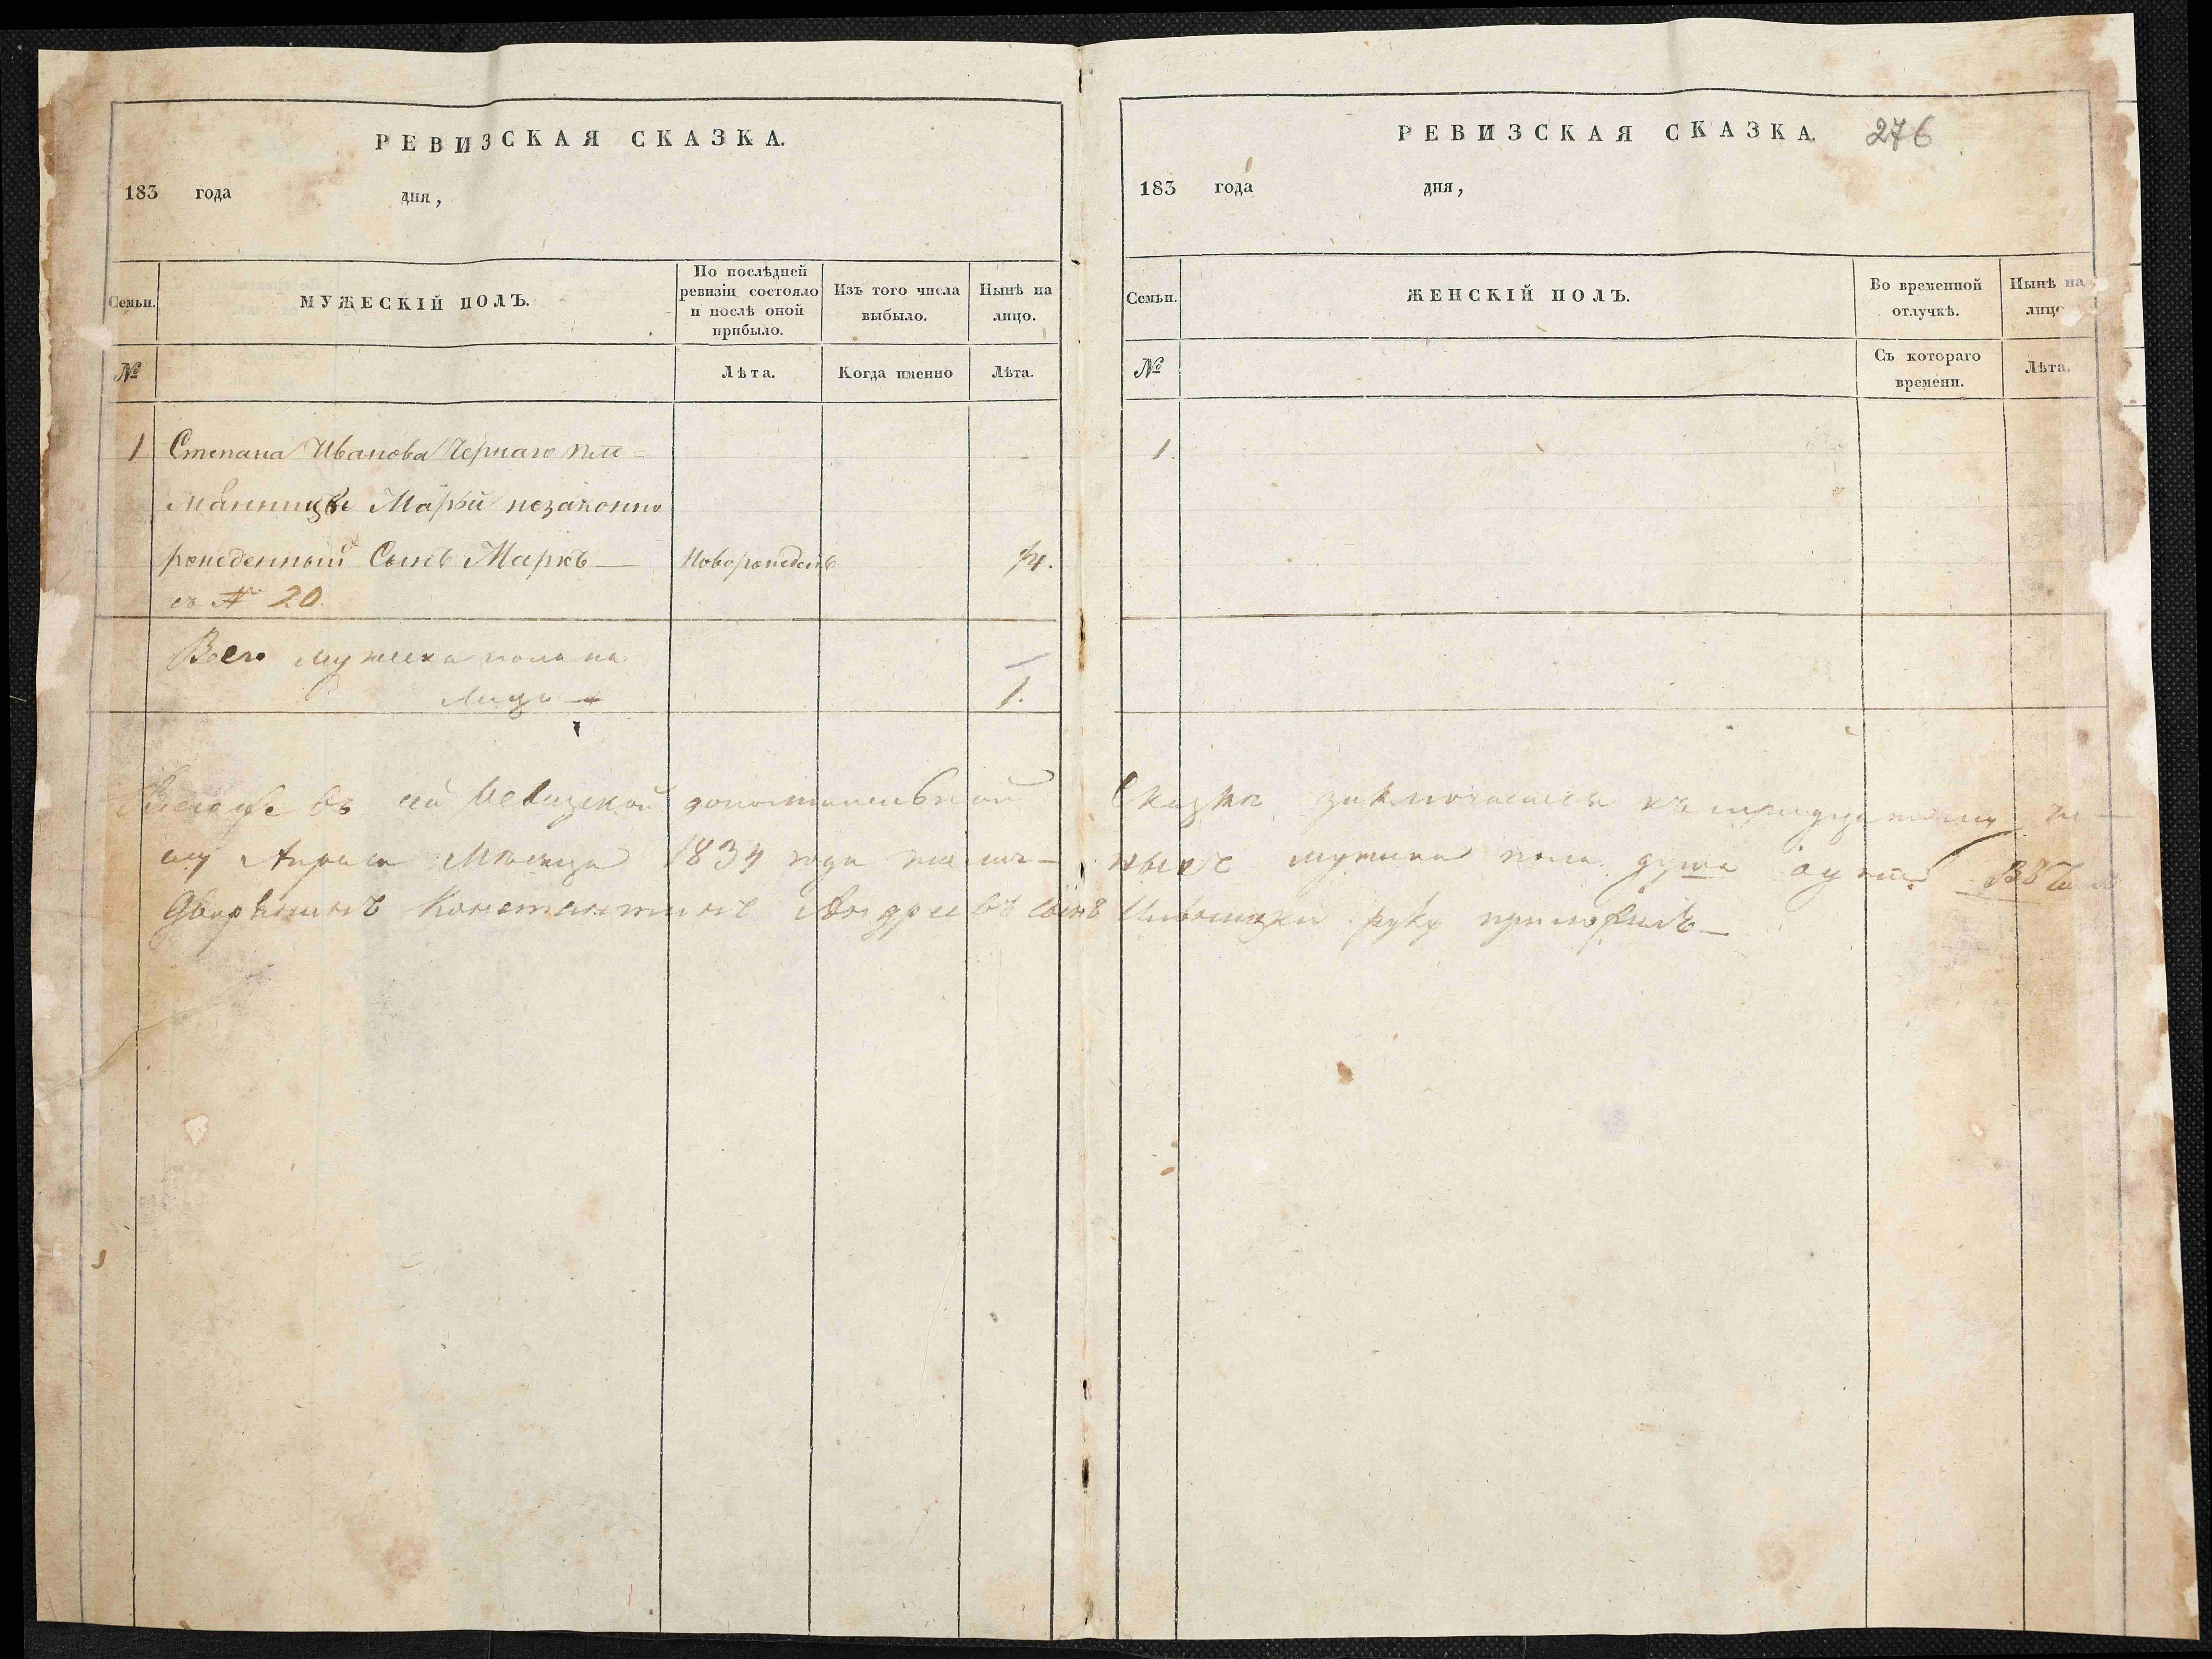 РЕВИЗСКАЯ СКАЗКА.
183 года дня,
Семьи.
МУЖЕСКІЙ ПОЛЪ.
По послѣдней
ревизіи состояло
и послѣ оной
прибыло.
Изъ того числа
выбыло.
Нынѣ на
лицо.
№
Лѣта.
Когда именно
Лѣта.
1 Степана Иванова Чернаго пле=
мянницы Марьи незаконно
рожденный Сынъ Маркъ — Новорожденъ
съ № 20.
Всего мужеска пола на
лицо — 1.
РЕВИЗСКАЯ СКАЗКА. 276
183 года дня,
Семьи.
ЖЕНСКІЙ ПОЛЪ.
Во временной
отлучкѣ.
Нынѣ на
лицо
№
Съ котораго
времени.
Лѣта.
1.
въ сей Ревизской дополнительной Сказке заключается къ тридцатому
Апреля Месяца 1834 года мужска пола душа
Дворянинъ Константинъ Андреевъ сынъ руку приложилъ —